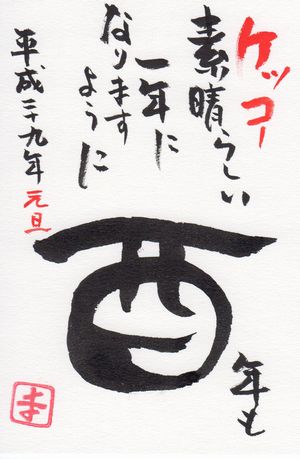 酉
年も
ケッコー
素晴らしい
一年に
なります
ように
平成二十九年 元旦